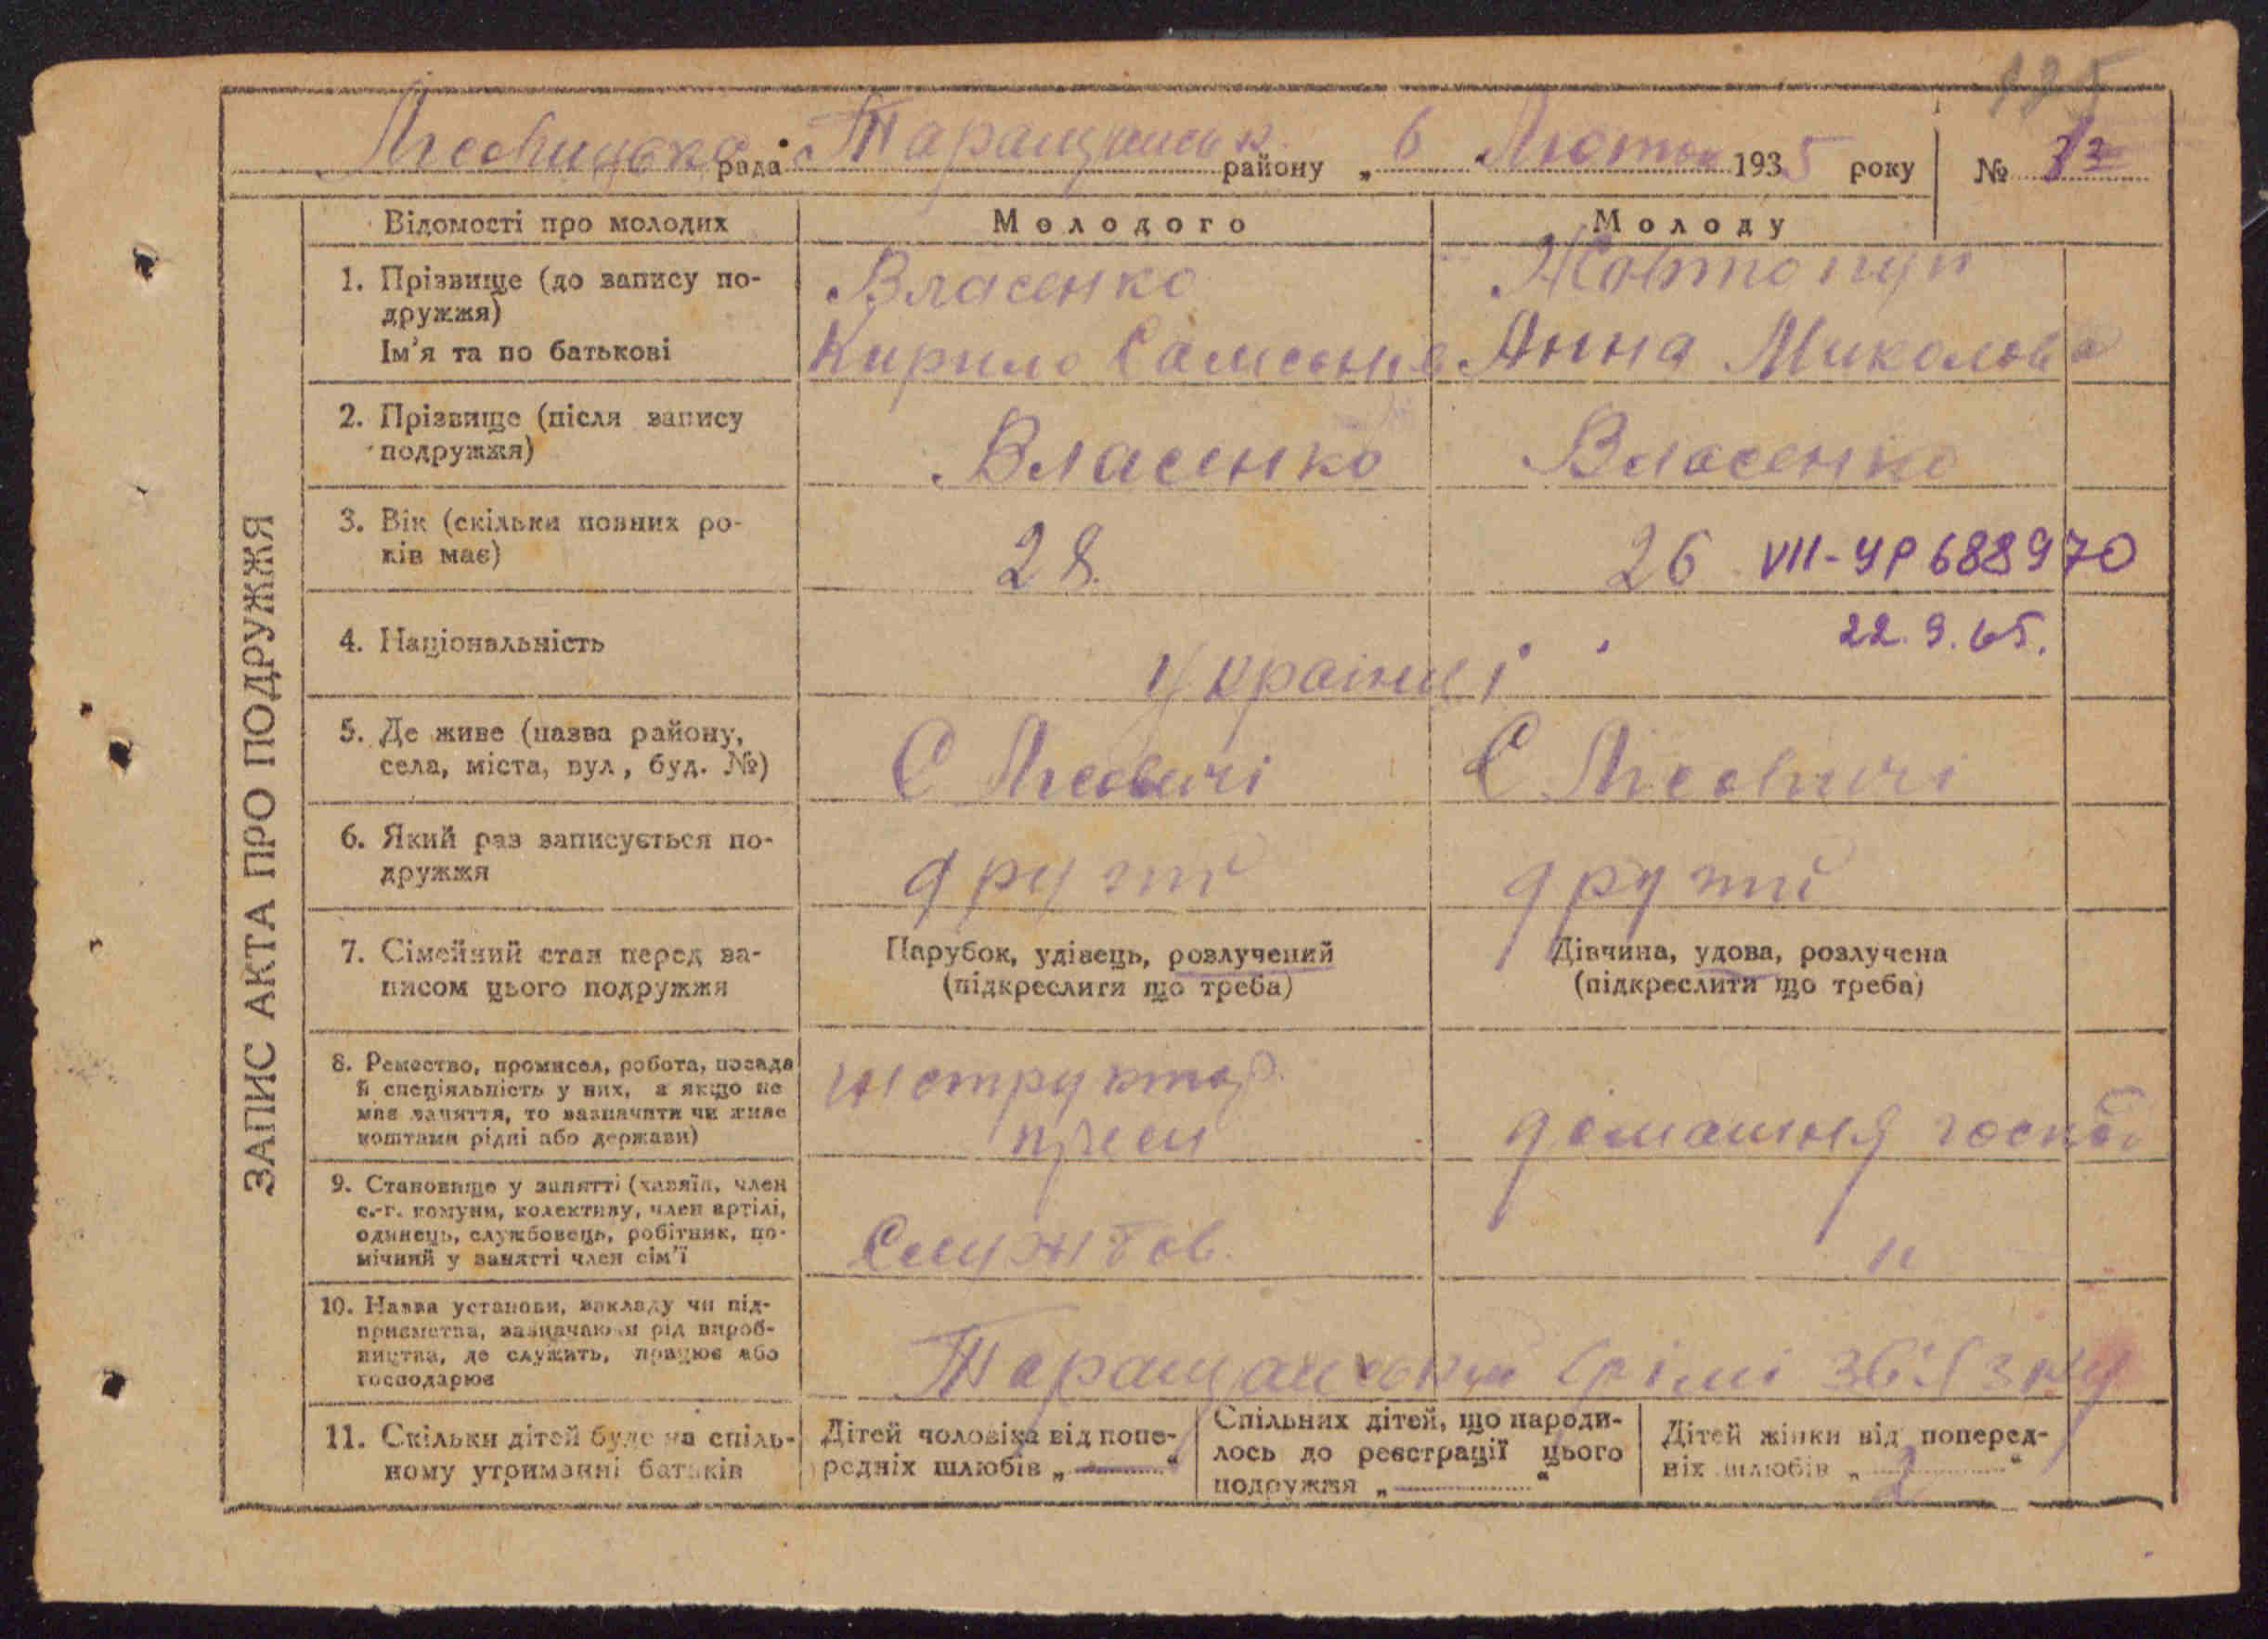 125
Лісовицька рада Таращанськ. району „ 6 " Лютого 1935 року № 12
ЗАПИС АКТА ПРО ПОДРУЖЖЯ
Відомості про молодих Молодого Молоду
1. Прізвище (до запису по-
дружжя)
Ім'я та по батькові
Власенко
Кирило Самсонів
Жовтопуп
Анна Миколова
2. Прізвище (після запису
подружжя)
Власенко Власенко
3. Вік (скільки повних ро-
ків має)
28. 26 VII-УР 688970
22.9.65.
4. Національність
Українці
5. Де живе (назва району,
села, міста, вул, буд. №)
С Лісовичі С Лісовичі
6. Який раз записується по-
дружжя
другий другий
7. Сімейний стан перед за-
писом цього подружжя
Парубок, удівець, розлучений
(підкреслити що треба)
Дівчина, удова, розлучена
(підкреслити що треба)
8. Ремество, промисел, робота, посада
й спеціяльність у них, а якщо не
має заняття, то зазначити чи живе
коштами рідні або держави)
домашня госпо
9. Становище у занятті (хазяїн, член
с.-г. комуни, колективу, член артілі,
одинець, службовець, робітник, по-
мічний у занятті член сім'ї
Службов. "
10. Назва установи, закладу чи під-
приємства, зазначаючи рід вироб-
ництва, де служить, працює або
господарює
Таращанський зв'язку
11. Скільки дітей буде на спіль-
ному утриманні батьків
Дітей чоловіка від попе-
редніх шлюбів „ — "
Спільних дітей, що народи-
лось до реєстрації цього
подружжя „ "
Дітей жінки від поперед-
ніх шлюбів „ 2 "